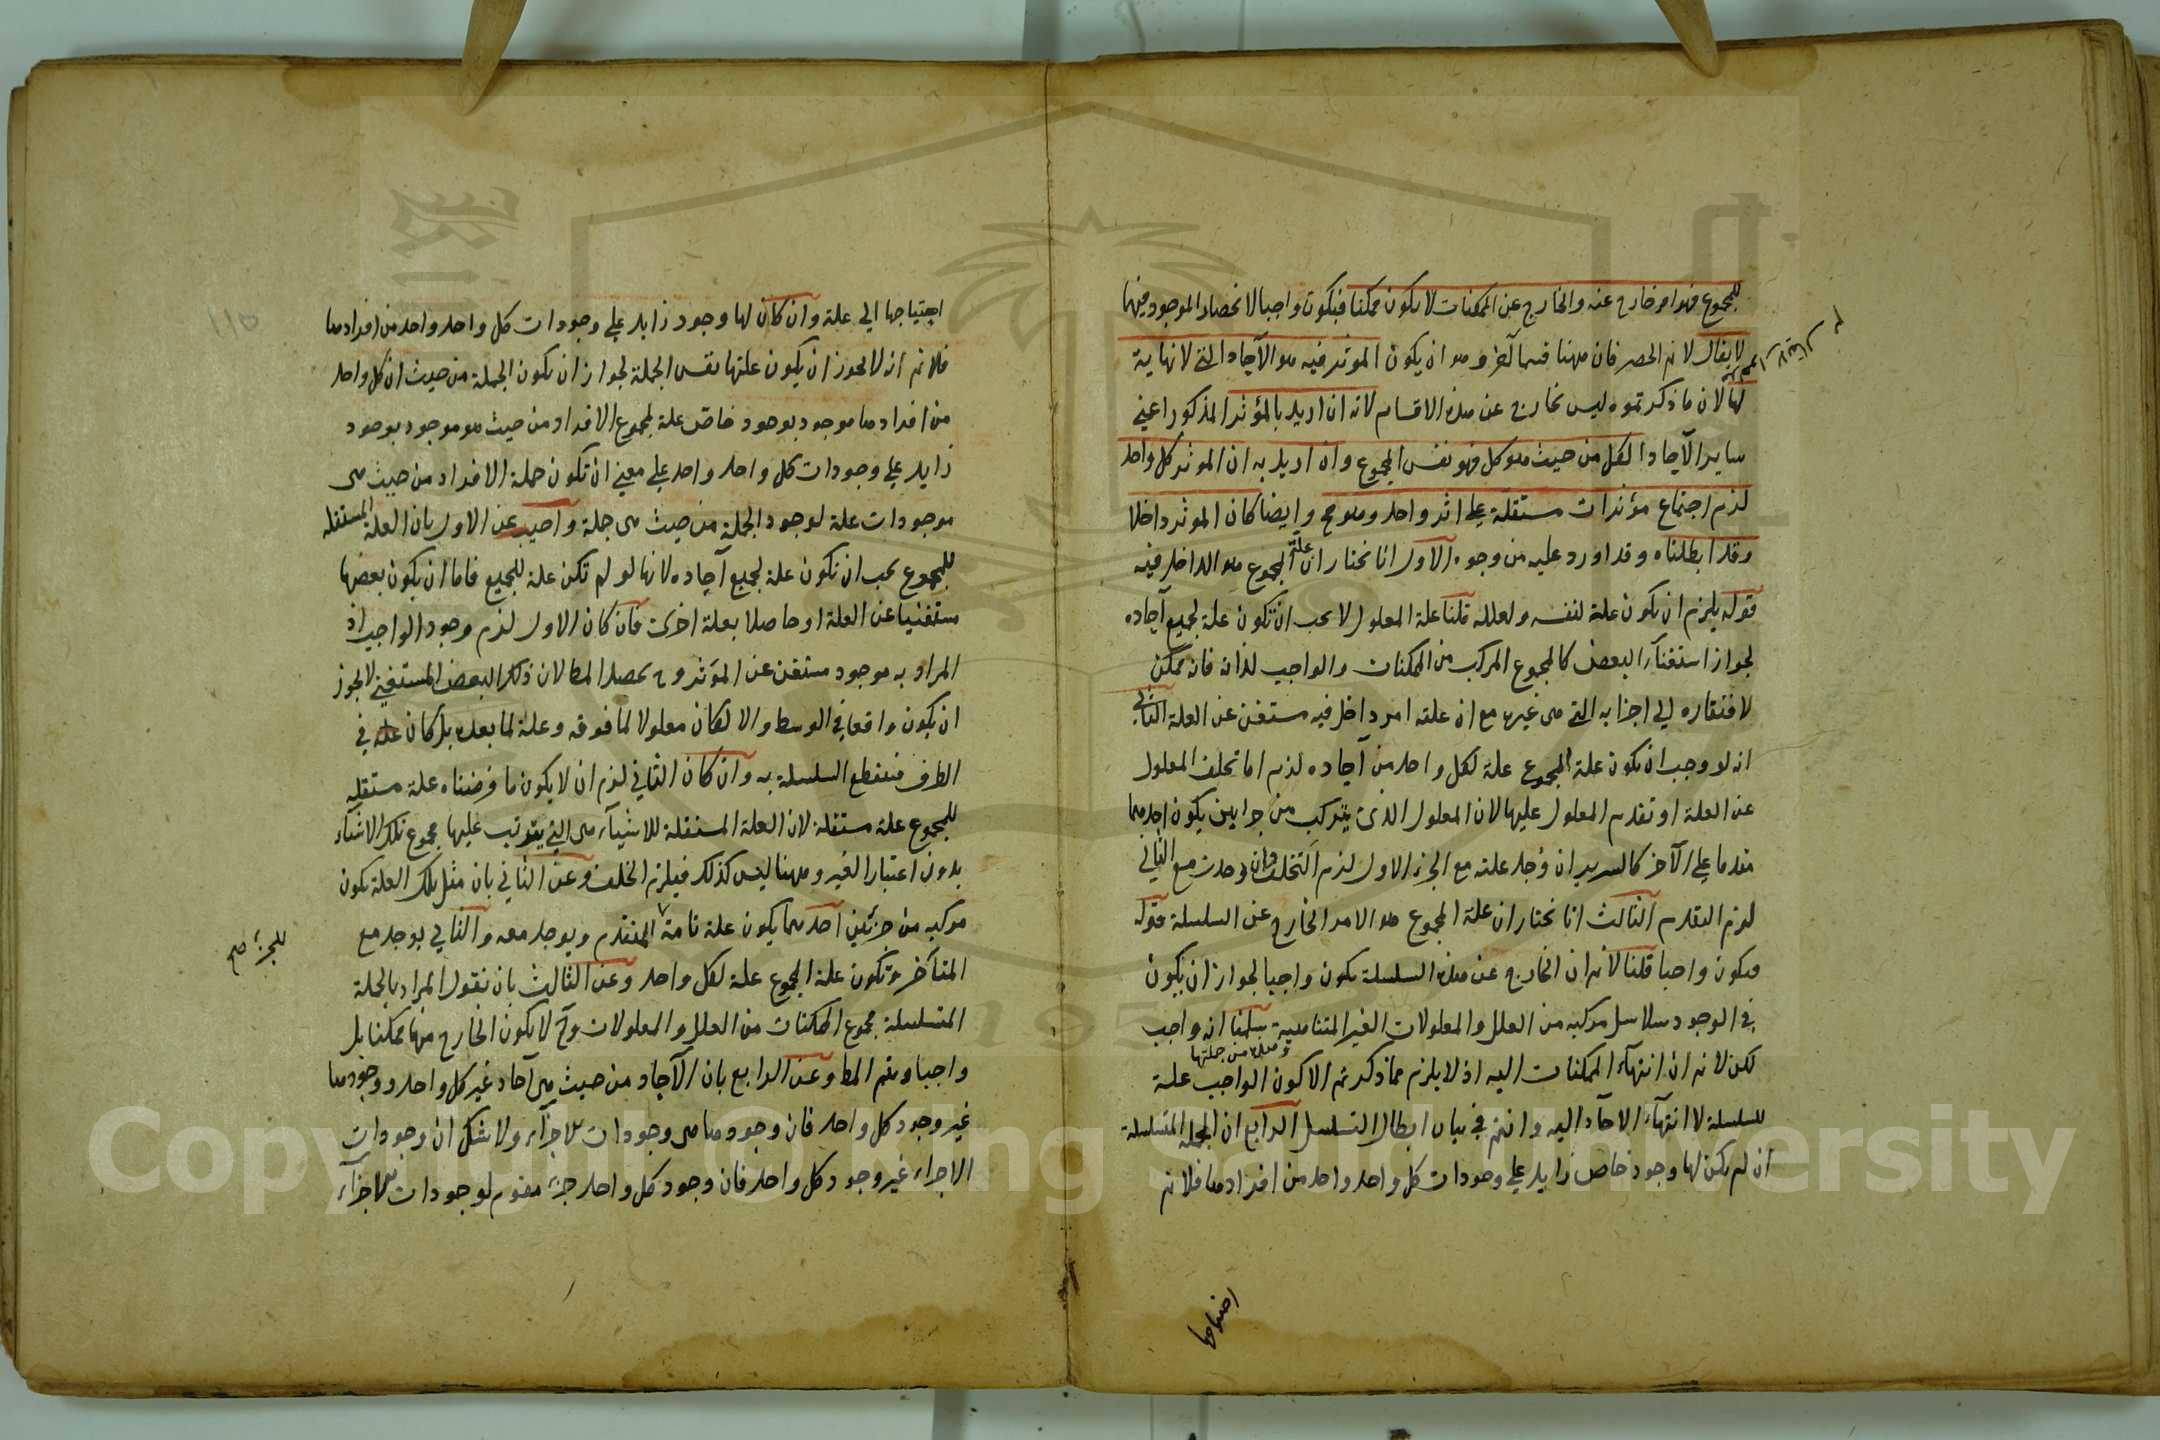 للمجموع فهو امر خارج عنه والخارج عن الممكنات لا يكون ممكنا فيكون واجبا لانحصار الموجود فيهما
لا يقال لا نم الحصر فان ههنا قسما آخر وهو ان يكون الموثر فيه هو الآحاد التي لا نهاية
لها لان ما ذكرتموه ليس بخارج عن هذه الاقسام لانه ان اريد بالمؤثر المذكور اعني
ساير الآحاد الكل من حيث هو كل فهو نفس المجموع وان اريد به ان الموثر كل واحد
لزم اجتماع مؤثرات مستقلة على اثر واحد وهو مح وايضا كان الموثر داخلا
وقد ابطلناه وقد اورد عليه من وجوه الاول انا نختار ان علة المجموع هو الداخل فيه
قوله يلزم ان يكون علة لنفسه ولعلله قلنا علة المعلول لا يجب ان تكون علة لجميع آحاده
لجواز استغناء البعض كالمجموع المركب من الممكنات والواجب لذاته فانه ممكن
لافتقاره الى اجزائه التي هي غيره مع ان علته امر داخل فيه مستغن عن العلة الثاني
انه لو وجب ان تكون علة المجموع علة لكل واحد من آحاده لزم اما تخلف المعلول
عن العلة او تقدم المعلول عليها لان المعلول الذي يتركب من جزأين يكون احدهما
مقدما على الآخر كالسرير ان وجد علته مع الجزء الاول لزم التخلف وان وجدت مع الثاني
لزم التقدم الثالث انا نختار ان علة المجموع هو الامر الخارج عن السلسلة قوله
فيكون واجبا قلنا لا نم ان الخارج عن هذه السلسلة يكون واجبا لجواز ان يكون
في الوجود سلاسل مركبة من العلل والمعلولات الغير المتناهية سلمنا انه واجب
وهذه من جملتها
لكن لا نم ان انتهاء الممكنات اليه اذ لا يلزم مما ذكرتم الا كون الواجب علة
للسلسلة لا انتهاء الآحاد اليه وانتم في بيان ابطال التسلسل الرابع ان الجملة المتسلسلة
ان لم يكن لها وجود خاص زايد على وجودات كل واحد واحد من افرادها فلا نم
احتياجها
احتياجها الى علة وان كان لها وجود زايد على وجودات كل واحد واحد من افرادها
فلا نم انه لا يجوز ان يكون علتها نفس الجملة لجواز ان تكون الجملة من حيث ان كل واحد
من افرادها موجود بوجود خاص علة لمجموع الافراد من حيث هو موجود بوجود
زايد على وجودات كل واحد واحد على معنى ان تكون جملة الافراد من حيث هي
موجودات علة لوجود الجملة من حيث هي جملة واجيب عن الاول بان العلة المستقلة
للمجموع يجب ان تكون علة لجميع آحاده لانها لو لم تكن علة للجميع فاما ان يكون بعضها
مستغنيا عن العلة او حاصلا بعلة اخرى فان كان الاول لزم وجود الواجب اذ
المراد به موجود مستغن عن المؤثر و ح يحصل المط لان ذلك البعض المستغني لا يجوز
ان يكون واقعا في الوسط والا لكان معلولا لما فوقه وعلة لما بعده بل كان علة في
الطرف فتنقطع السلسلة به وان كان الثاني لزم ان لا يكون ما فرضناه علة مستقلة
للمجموع علة مستقلة لان العلة المستقلة للاشياء هي التي يترتب عليها مجموع تلك الاشياء
بدون اعتبار الغير وههنا ليس كذلك فيلزم الخلف وعن الثاني بان مثل تلك العلة تكون
مركبة من جزئين احدهما يكون علة تامة المتقدم ويوجد معه والثاني يوجد مع
للجزء صح
المتأخر وتكون علة المجموع علة لكل واحد وعن الثالث بان نقول المراد بالجملة
المتسلسلة مجموع الممكنات من العلل والمعلولات وح لا يكون الخارج منها ممكنا بل
واجبا ويتم المط وعن الرابع بان الآحاد من حيث هي آحاد غير كل واحد ووجودها
غير وجود كل واحد فان وجودها هي وجودات الاجزاء ولا شك ان وجودات
الاجزاء غير وجود كل واحد فان وجود كل واحد جزء مقوم لوجودات الاجزاء
Copyright © King Saud University